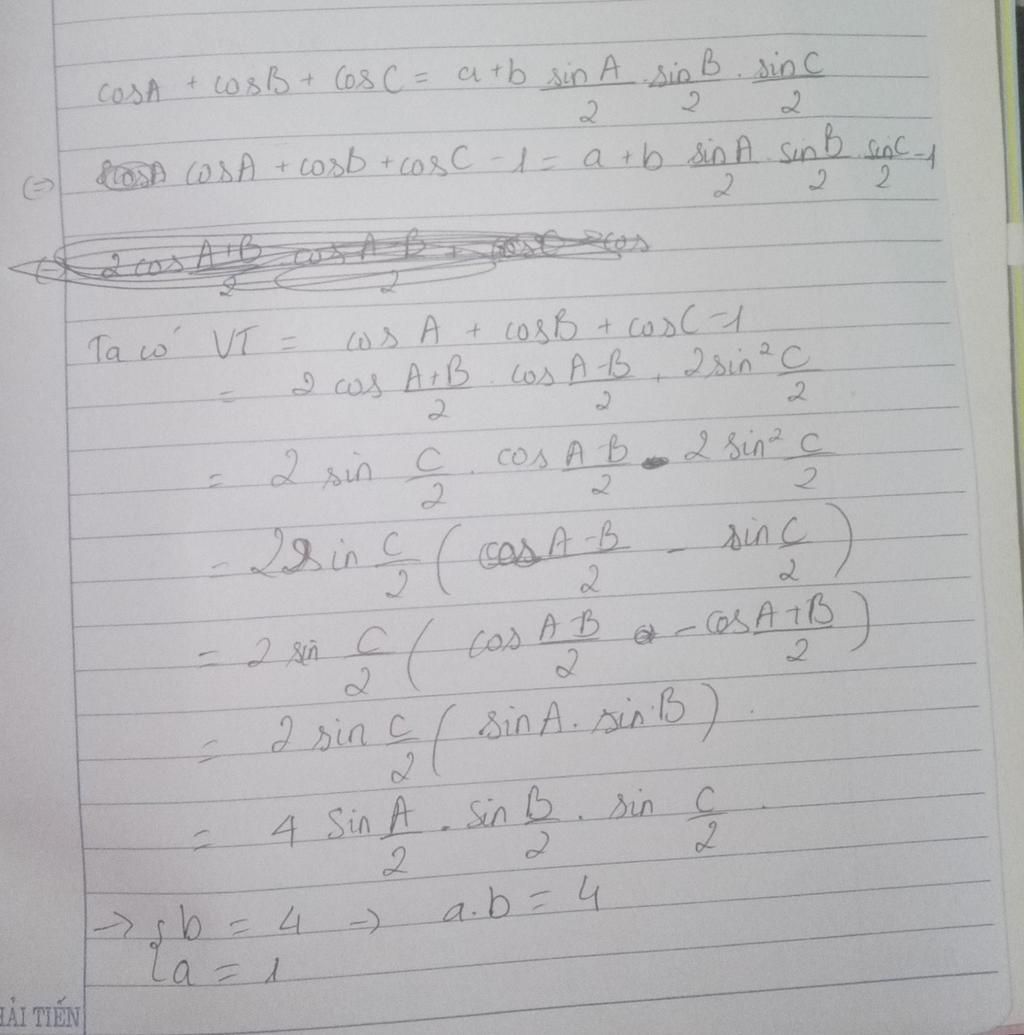 cosA + cosB + cosC = a+b sinA/2 . sinB/2 . sinC/2
(=) cosA + cosb + cosC - 1 = a + b sinA/2 . sinB/2 sinC/2 -1
2 cos A+B/2 cos A-B/2
Ta có VT = cos A + cosB + cosC-1
= 2 cos A+B/2 . cos A-B/2 . 2sin² C/2
= 2 sin C/2 . cos A-B/2 - 2 sin² C/2
= 2sin C/2 ( cos A-B/2 - sin C/2 )
= 2 sin C/2 ( cos A-B/2 - cos A+B/2 )
= 2 sin C/2 ( sinA. sin B ) .
= 4 sin A/2 . sin B/2 . sin C/2 .
→ { b = 4 → a.b = 4
a = 1
HẢI TIẾN